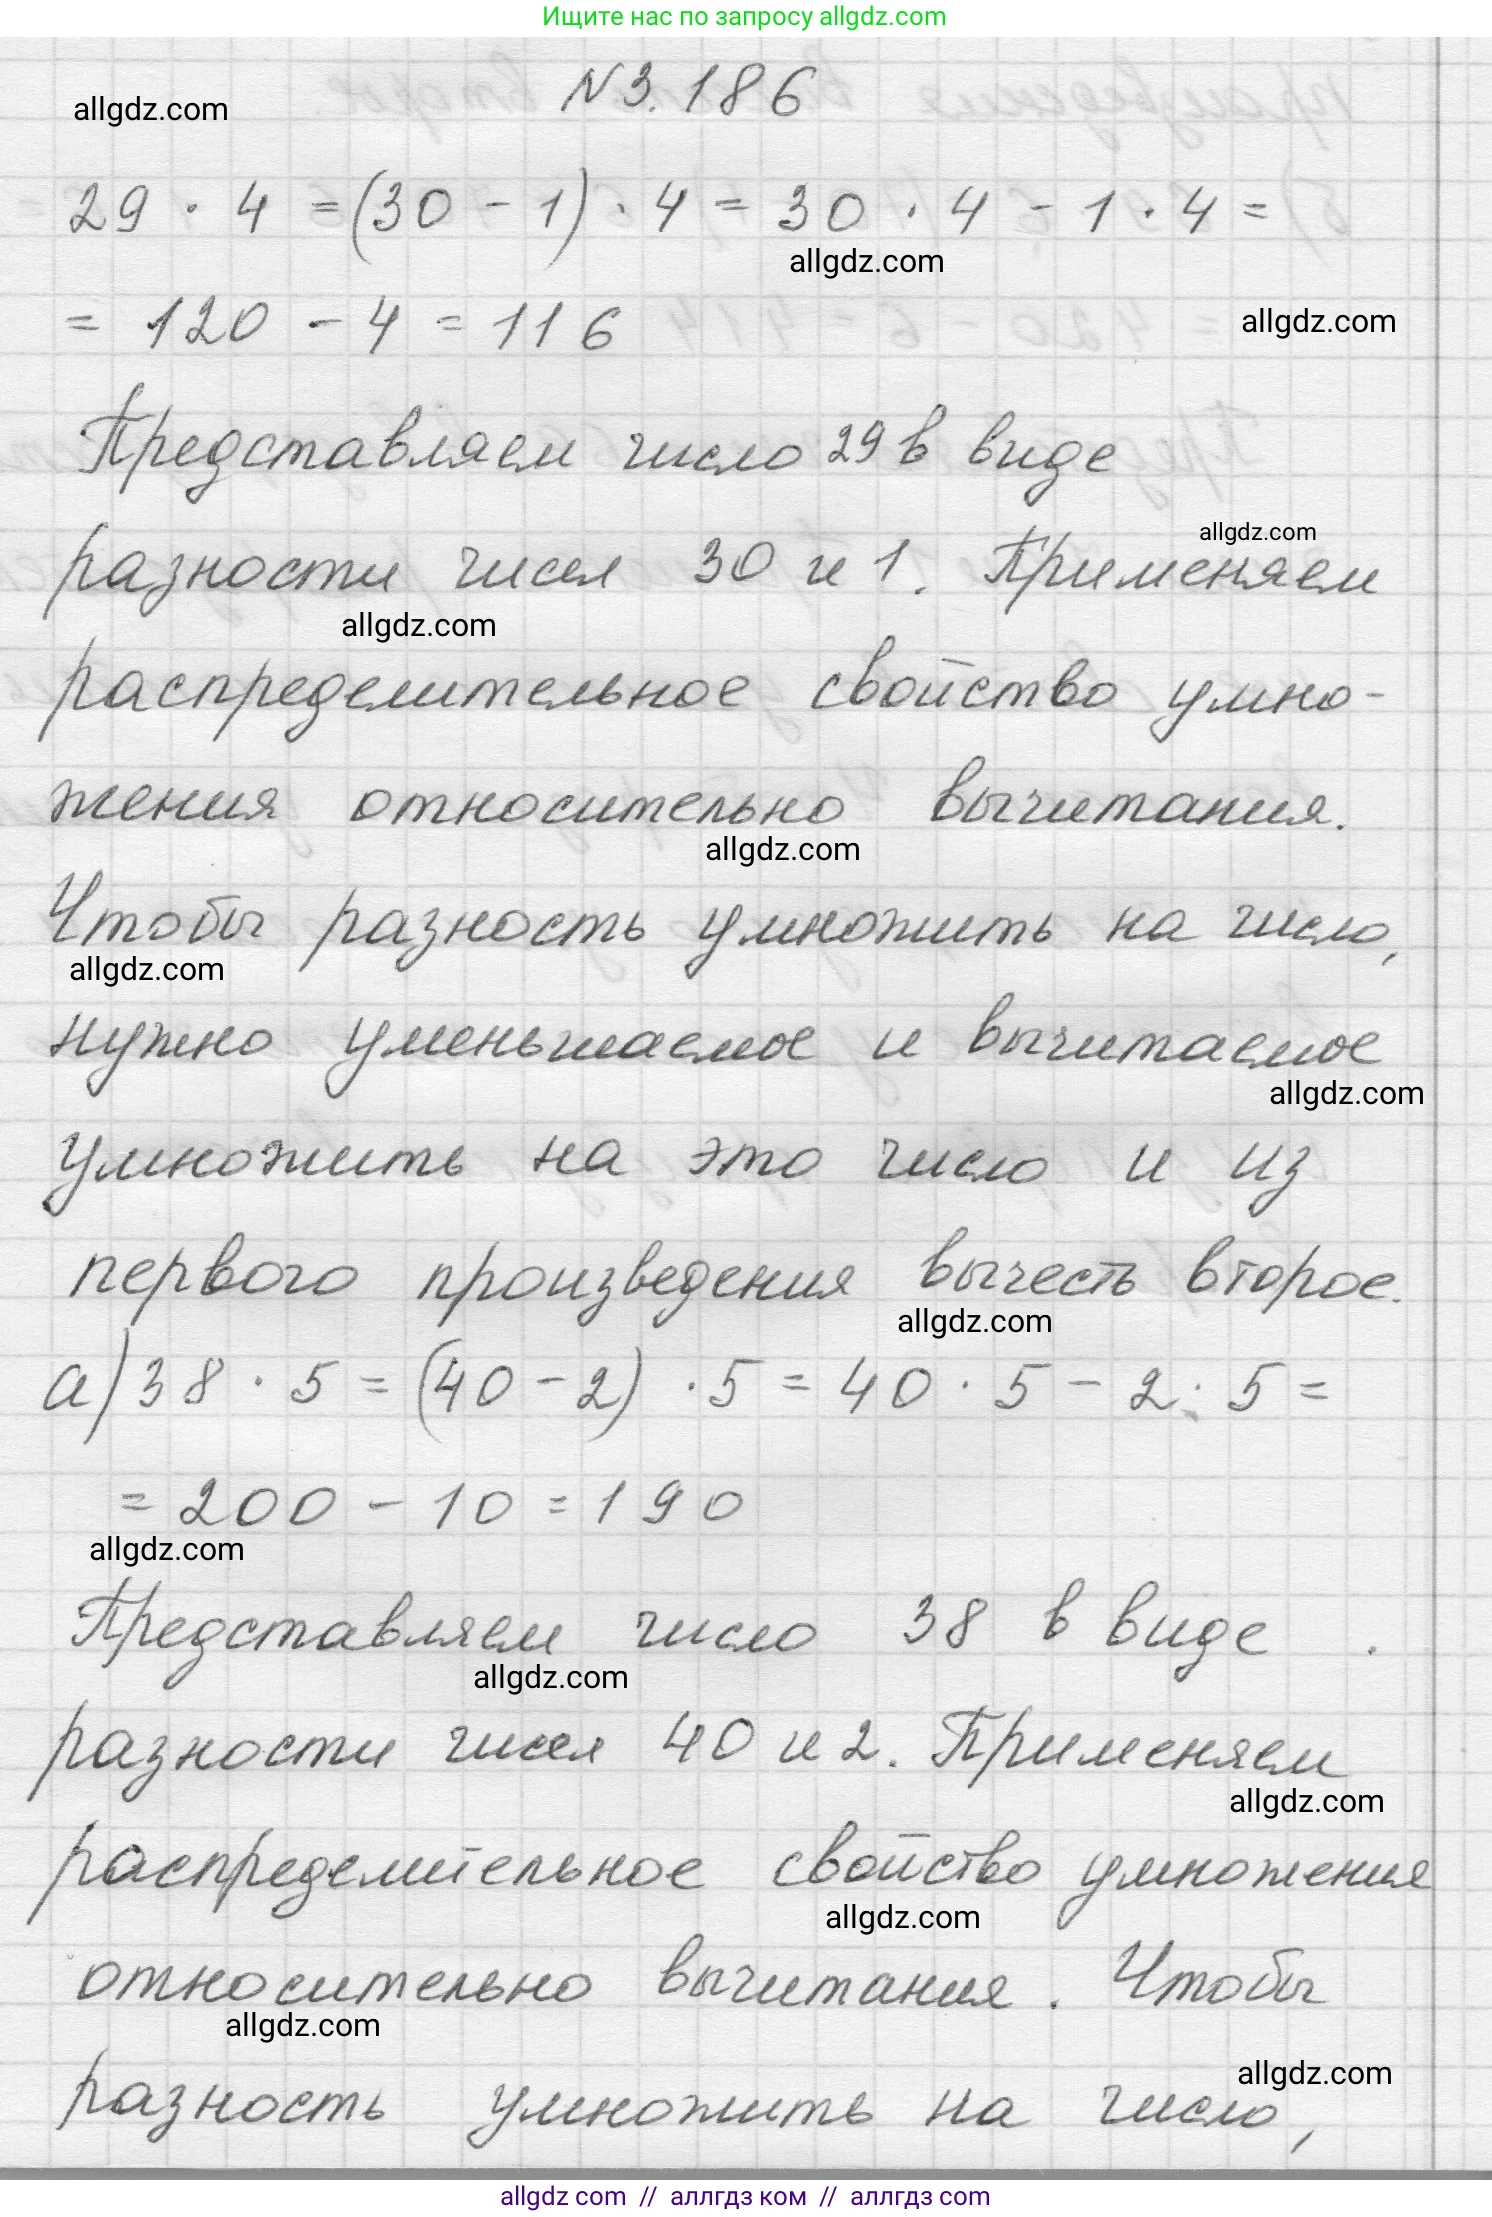 Ищите нас по запросу allgdz.com
N 3.186
allgdz.com
29 · 4 = (30 - 1) · 4 = 30 · 4 - 1 · 4 =
allgdz.com
= 120 - 4 = 116
allgdz.com
Представляем число 29 в виде
allgdz.com
разности чисел 30 и 1. Применяем
allgdz.com
распределительное свойство умно-
жения относительно вычитания.
allgdz.com
Чтобы разность умножить на число,
allgdz.com
нужно уменьшаемое и вычитаемое
allgdz.com
умножить на это число и из
первого произведения вычесть второе.
allgdz.com
а) 38 · 5 = (40 - 2) · 5 = 40 · 5 - 2 · 5 =
= 200 - 10 = 190
allgdz.com
Представляем число 38 в виде
allgdz.com
разности чисел 40 и 2. Применяем
allgdz.com
распределительное свойство умножения
allgdz.com
относительно вычитания. Чтобы
allgdz.com
allgdz.com
разность умножить на число,
allgdz.com // аллгдз ком // аллгдз com